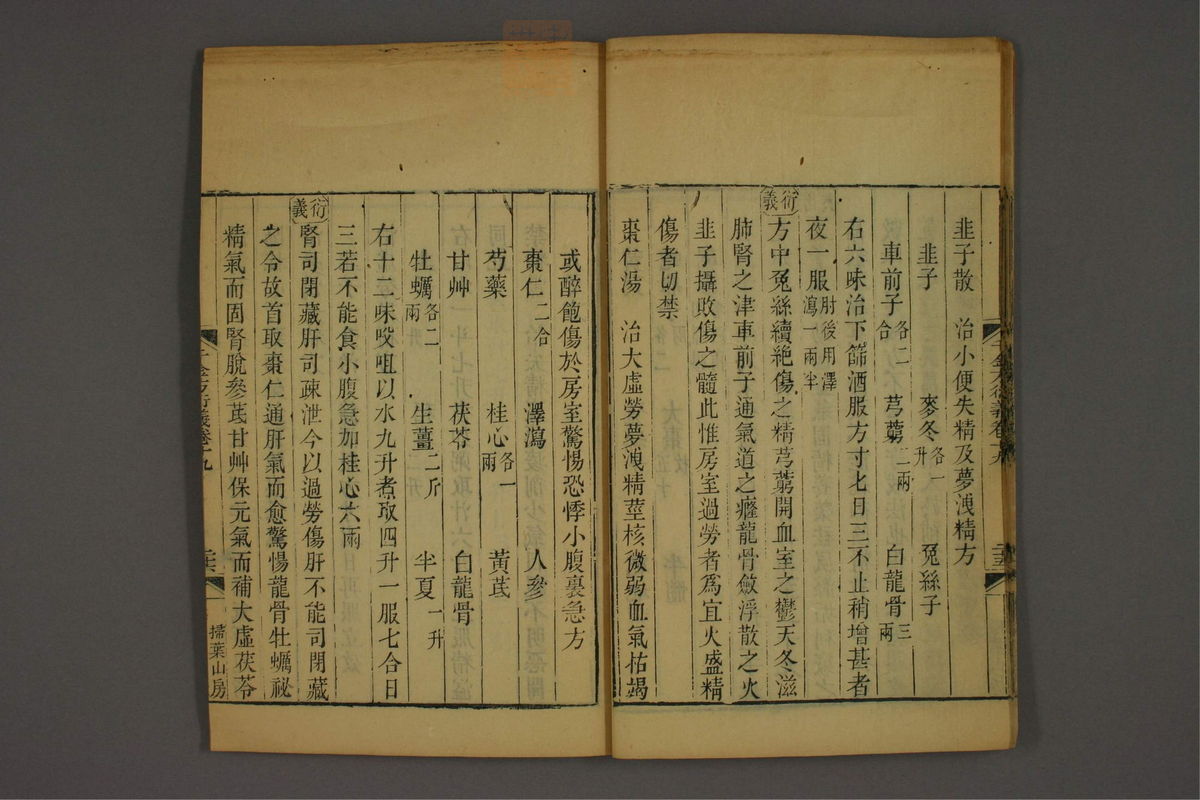 韭子散　治小便失精及夢洩精方
韭子　麥冬各一升　兔絲子
車前子各二合　芎藭二兩　白龍骨三兩
右六味治下篩酒服方寸匕日三不止稍增甚者
夜一服肘後用澤瀉一兩半
衍義　方中兔絲續絶傷之精芎藭開血室之鬱天冬滋
肺腎之津車前子通氣道之癃龍骨斂浮散之火
韭子攝敗傷之髓此惟房室過勞者爲宜火盛精
傷者切禁
棗仁湯　治大虛勞夢洩精莖核微弱血氣枯竭
或醉飽傷於房室驚惕恐悸小腹裏急方
棗仁二合　澤瀉　人參
芍藥　桂心各一兩　黃芪
甘艸　茯苓　白龍骨
牡蠣各二兩　生薑二斤　半夏一升
右十二味㕮咀以水九升煮取四升一服七合日
三若不能食小腹急加桂心六兩
衍義　腎司閉藏肝司疎泄今以過勞傷肝不能司閉藏
之令故首取棗仁通肝氣而愈驚惕龍骨牡蠣祕
精氣而固腎脫參芪甘艸保元氣而補大虛茯苓
千金方衍義卷十九
掃葉山房